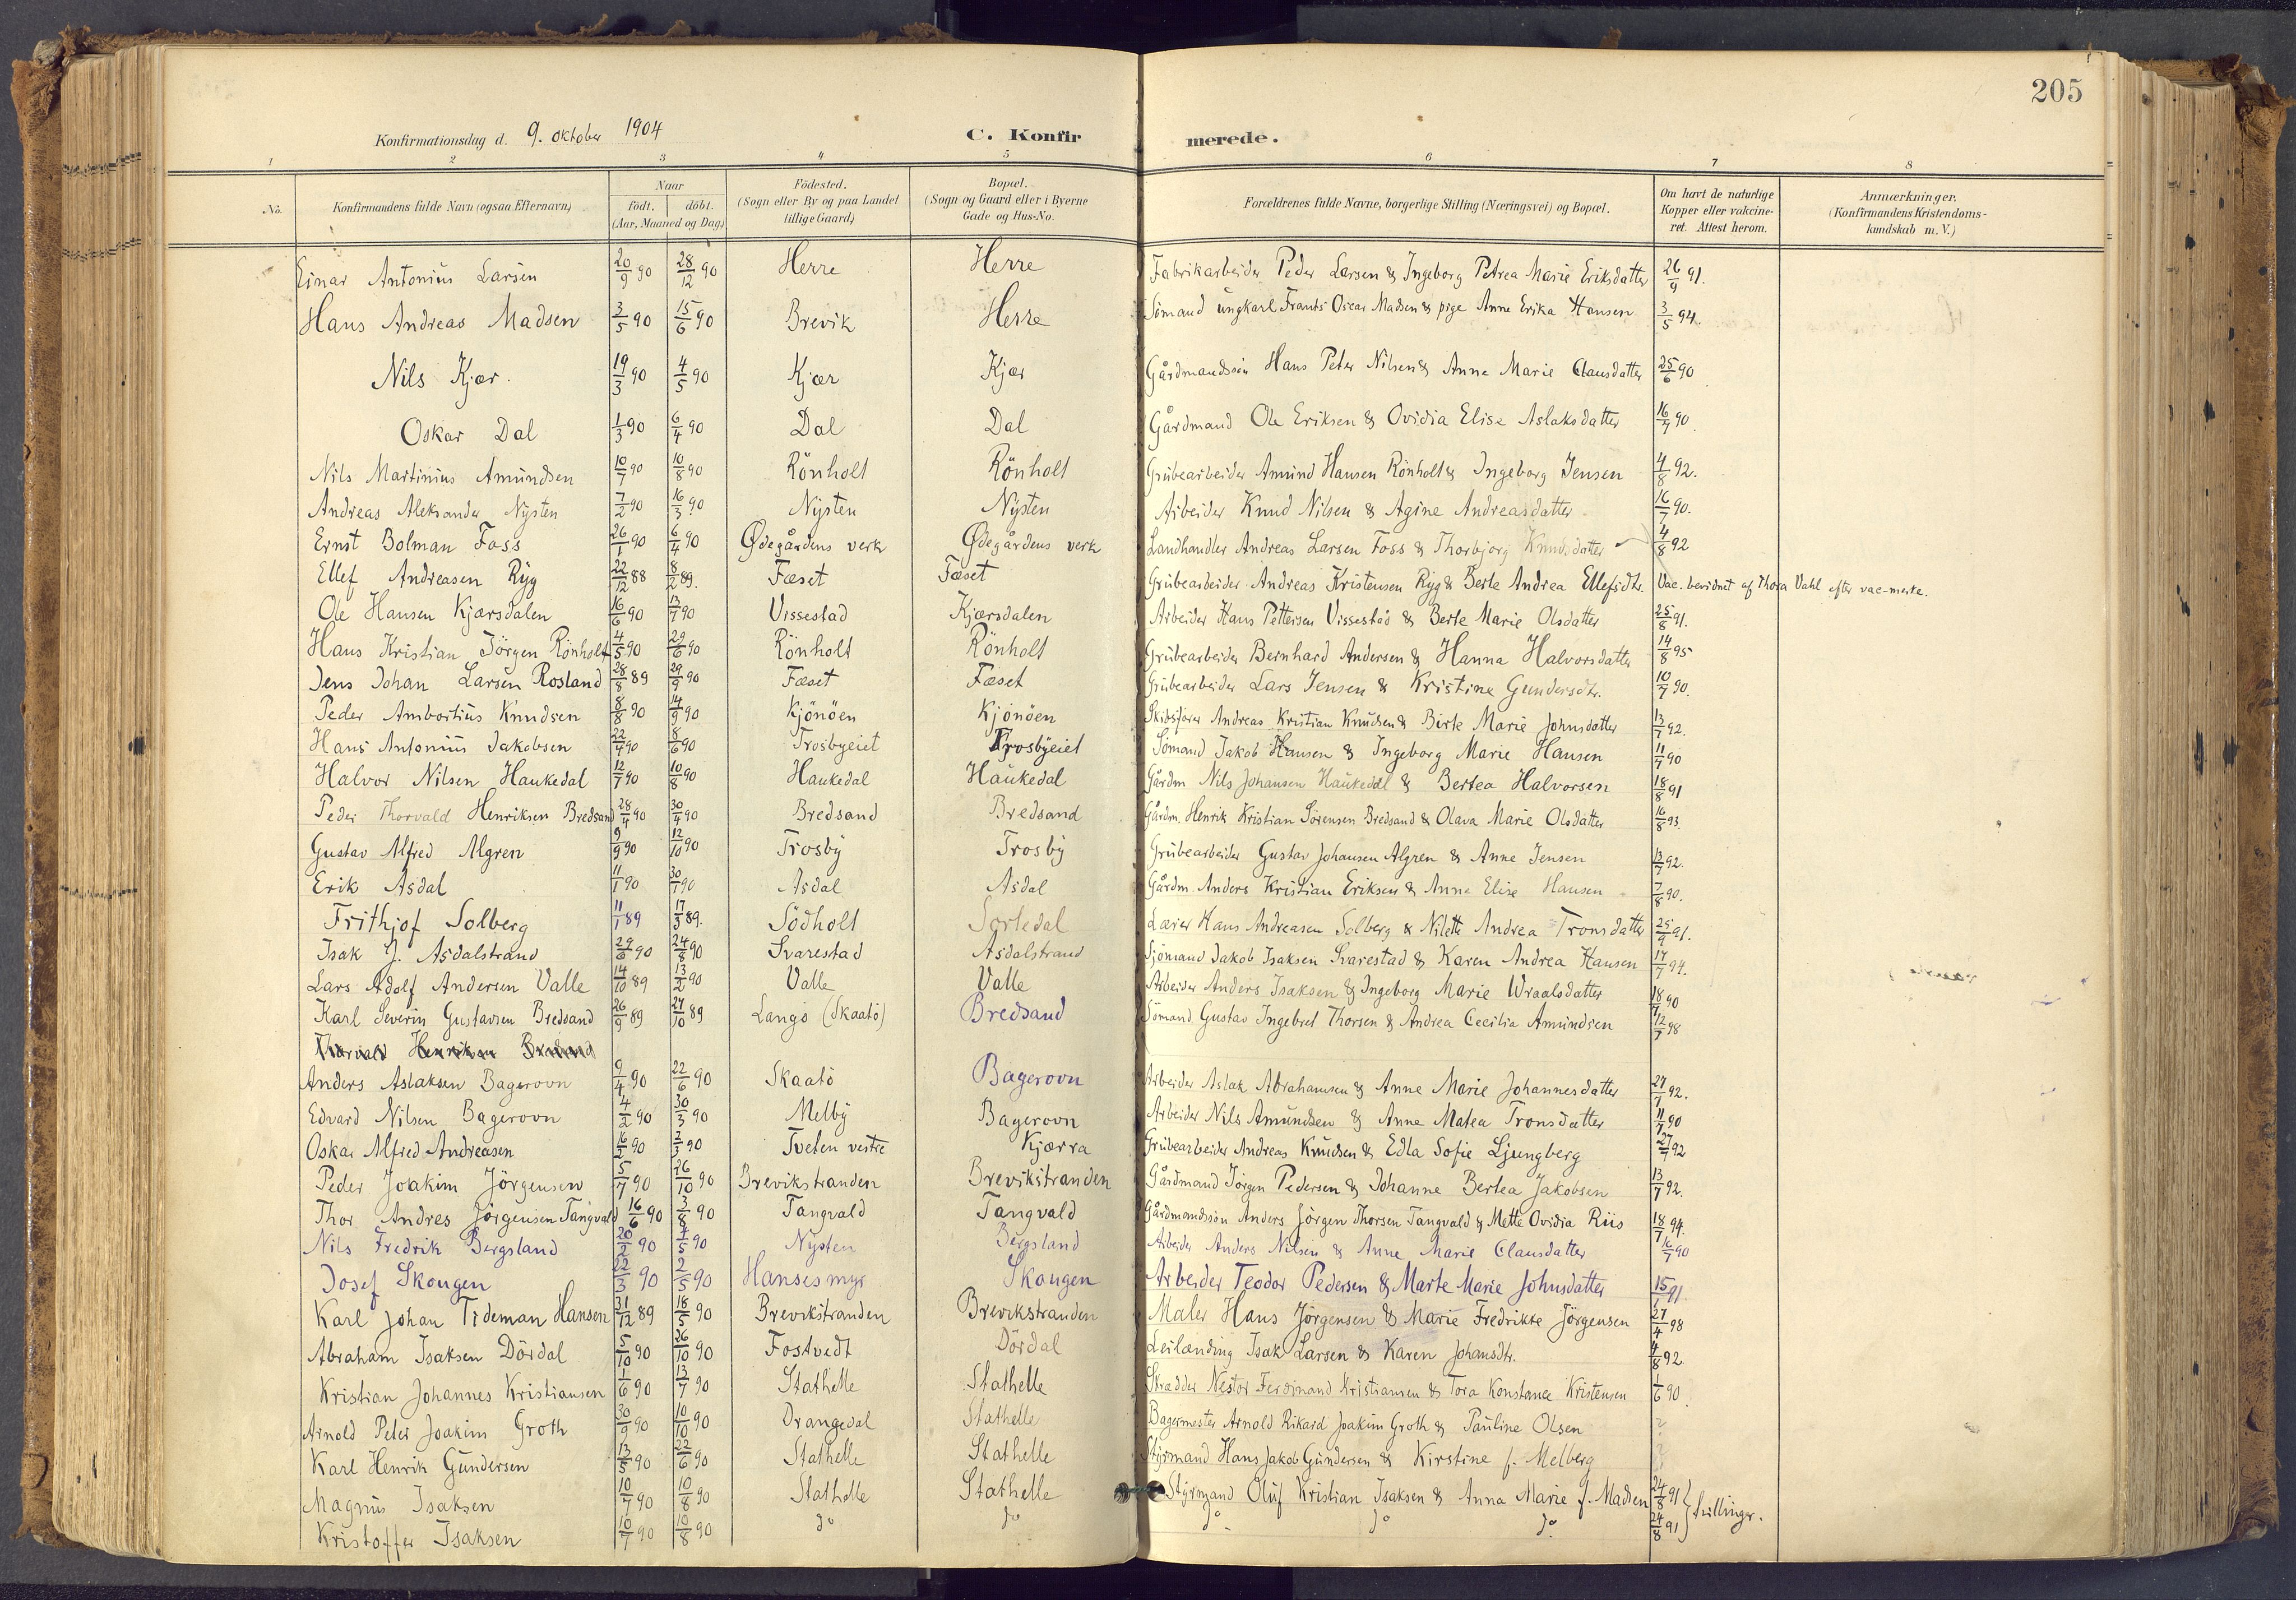 205
Konfirmationsdag d. 9. oktober 1904
C. Konfirmerede.
1 2 3 4 5 6 7 8
No. Konfirmandens fulde Navn (ogsaa Efternavn) Naar født. døbt. (Aar, Maaned og Dag) Födested. (Sogn eller By og paa Landet tillige Gaard) Bopæl. (Sogn og Gaard eller i Byerne Gade og Hus-No. Forældrenes fulde Navne, borgerlige Stilling (Næringsvei) og Bopæl. Om havt de naturlige Kopper eller vakcineret. Attest herom. Anmærkninger. (Konfirmandens Kristendomskundskab m. V.)
Einar Antonius Larsen 20/9 90 28/12 90 Herre Herre Fabrikarbeider Peder Larsen & Ingeborg Petrea Marie Eriksdatter 26/9 91.
Hans Andreas Madsen 3/5 90 15/6 90 Brevik Herre Sömand ungkarl Frants Oscar Madsen & pige Anne Erika Hansen 3/5 94.
Nils Kjær. 19/3 90 4/5 90 Kjær Kjær Gårdmandssön Hans Peter Nilsen & Anne Marie Clausdatter 25/6 90
Oskar Dal 1/3 90 6/4 90 Dal Dal Gårdmand Ole Eriksen & Ovidia Elise Aslaksdatter 16/7 90.
Nils Martinius Amundsen 10/7 90 10/8 90 Rönholt Rönholt Grubearbeider Amund Hansen Rönholt & Ingeborg Jensen 4/8 92.
Andreas Aleksander Nysten 7/2 90 16/3 90 Nysten Nysten Arbeider Knud Nilsen & Agine Andreasdatter 16/7 90.
Ernst Bolman Foss 26/1 90 6/4 90 Ødegårdens verk Ødegårdens verk Landhandler Andreas Larsen Foss & Thorbjorg Knudsdatter 4/8 92
Ellef Andreasen Ryg 22/12 88 8/2 89. Fæset Fæset Grubearbeider Andreas Kristensen Ryg & Berte Andrea Ellefsdtr. Vac. bevidnet af Thora Vahl efter vac-merke.
Ole Hansen Kjærsdalen 16/6 90 13/7 90 Vissestad Kjærsdalen Arbeider Hans Pettersen Vissestad & Berte Marie Olsdatter 25/8 91.
Hans Kristian Jörgen Rönholt 4/5 90 29/6 90 Rönholt Rönholt Grubearbeider Bernhard Andersen & Hanna Halvorsdatter 14/8 95
Jens Johan Larsen Rosland 28/8 89 29/9 90 Fæset Fæset Grubearbeider Lars Jensen & Kristine Gundersdtr. 10/7 90.
Peder Ambortius Knudsen 8/8 90 14/9 90 Kjönöen Kjönöen Skibsförer Andreas Kristian Knudsen & Birte Marie Johnsdatter 13/7 92.
Hans Antonius Jakobsen 22/4 90 8/6 90 Trosbyeiet Trosbyeiet Sömand Jakob Hansen & Ingeborg Marie Hansen 11/7 90
Halvor Nilsen Haukedal 12/7 90 10/8 90 Haukedal Haukedal Gårdm. Nils Johansen Haukedal & Bertea Halvorsen 18/8 91
Peder Thorvald Henriksen Bredsand 28/4 90 30/4 90 Bredsand Bredsand Gårdm. Henrik Kristian Sörensen Bredsand & Olava Marie Olsdatter 16/8 93.
Gustav Alfred Algren 9/9 90 12/10 90 Trosby Trosby Grubearbeider Gustav Johansen Algren & Anne Jensen 13/7 92.
Erik Asdal 11/1 90 30/1 90 Asdal Asdal Gårdm. Anders Kristian Eriksen & Anne Elise Hansen 7/8 90.
Frithjof Solberg 11/1 89 17/3 89. Södholt Sortedal Lærer Hans Andreasen Solberg & Nilette Andrea Tronsdatter 25/9 91.
Isak J. Asdalstrand 29/6 90 24/8 90 Svarestad Asdalstrand Sjömand Jakob Isaksen Svarestad & Karen Andrea Hansen 17/7 94.
Lars Adolf Andersen Valle 14/10 89 13/2 90 Valle Valle Arbeider Anders Isaksen & Ingeborg Marie Wraalsdatter 18/7 90
Karl Severin Gustavsen Bredsand 26/9 89 27/10 89 Langö (Skaatö) Bredsand Sömand Gustav Ingebret Thorsen & Andrea Cecilia Amundsen 12/7 98
Thorvald Henriksen Bredsand
Anders Aslaksen Bagerovn 9/4 90 22/6 90 Skaatö Bagerovn Arbeider Aslak Abrahamsen & Anne Marie Johannesdatter 27/7 92.
Edvard Nilsen Bagerovn 4/2 90 30/3 90 Melby Bagerovn Arbeider Nils Amundsen & Anne Matea Tronsdatter 11/7 90
Oskar Alfred Andreasen 16/2 90 2/3 90 Tveten vestre Kjærra Grubearbeider Andreas Knudsen & Edla Sofie Ljungberg 27/7 92
Peder Joakim Jörgensen 5/7 90 26/10 90 Brevikstranden Brevikstranden Gårdmand Jörgen Pedersen & Johanne Bertea Jakobsen 13/7 92.
Thor Andres Jörgensen Tangvald 16/6 90 3/8 90 Tangvald Tangvald Gårdmandssön Anders Jörgen Thorsen Tangvald & Mette Ovidia Riis 18/7 94.
Nils Fredrik Bergsland 20/2 90 4/5 90 Nysten Bergsland Arbeider Anders Nilsen & Anne Marie Clausdatter 16/7 90
Josef Skougen 22/3 90 2/5 90 Hansesmyr Skougen Arbeider Teodor Pedersen & Marte Marie Johnsdatter 15/1 91
Karl Johan Tideman Hansen 31/12 89 18/5 90 Brevikstranden Brevikstranden Maler Hans Jörgensen & Marie Fredrikke Jörgensen 27/4 98
Abraham Isaksen Dördal 5/10 90 26/10 90 Fostvedt Dördal Leilænding Isak Larsen & Karen Johansdtr. 4/8 92
Kristian Johannes Kristiansen 1/6 90 13/7 90 Stathelle Stathelle Skrædder Nestor Ferdinand Kristiansen & Tora Konstance Kristensen 1/6 90.
Arnold Peter Joakim Groth 30/9 90 10/10 90 Drangedal Stathelle Bagermester Arnold Rikard Joakim Groth & Pauline Olsen ?
Karl Henrik Gundersen 13/5 90 22/6 90 Stathelle Stathelle Styrmand Hans Jakob Gundersen & Kirstine f. Melberg ?
Magnus Isaksen 10/7 90 10/8 90 Stathelle Stathelle Styrmand Oluf Kristian Isaksen & Anna Marie f. Madsen 24/8 91 } tvillinger.
Kristoffer Isaksen 10/7 90 10/8 90 do do do do do 24/8 91